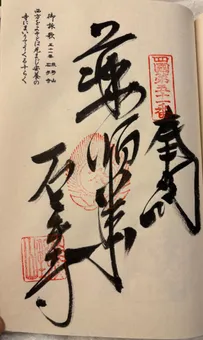 御詠歌 五十一番 熊野山 石手寺
西方をよそとは見まじ安養の
寺にまいりてうくる十らく
四国第五十一番
奉納
薬師
石手寺